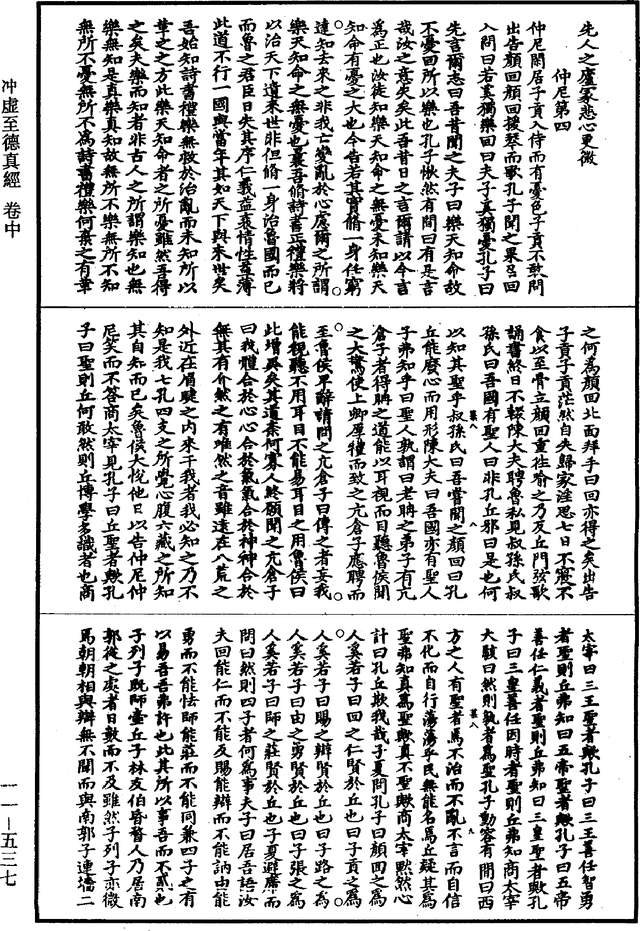 先人之廬冢悲心更微
仲尼第四
仲尼閒居子貢入侍而有憂色子貢不敢問
出告顏回顏回援琴而歌孔子聞之果召回
入問曰若奚獨樂回曰夫子奚獨憂孔子曰
先言爾志曰吾昔聞之夫子曰樂天知命故
不憂回所以樂也孔子愀然有間曰有是言
哉汝之意失矣此吾昔日之言爾請以今言
為正也汝徒知樂天知命之無憂未知樂天
知命有憂之大也今告若其實脩一身任窮
達知去來之非我亡變亂於心慮爾之所謂
樂天知命之無憂也曩吾脩詩書正禮樂將
以治天下遺來世非但脩一身治魯國而已
而魯之君臣日失其序仁義益衰情性益薄
此道不行一國與當年其如天下與來世矣
吾始知詩書禮樂無救於治亂而未知所以
革之之方此樂天知命者之所憂雖然吾得
之矣夫樂而知者非古人之所謂樂知也無
樂無知是真樂真知故無所不樂無所不知
無所不憂無所不為詩書禮樂何棄之有革
之何為顏回北面拜手曰回亦得之矣出告
子貢子貢茫然自失歸家淫思七日不寢不
食以至骨立顏回重往喻之乃反丘門弦歌
誦書終日不輟陳大夫聘魯私見叔孫氏叔
孫氏曰吾國有聖人曰非孔丘邪曰是也何
以知其聖乎叔孫氏曰吾嘗聞之顏回曰孔
丘能廢心而用形陳大夫曰吾國亦有聖人
子弗知乎曰聖人孰謂曰老聃之弟子有亢
倉子者得聃之道能以耳視而目聽魯侯聞
之大驚使上卿厚禮而致之亢倉子應聘而
至魯侯卑辭請問之亢倉子曰傳之者妄我
能視聽不用耳目不能易耳目之用魯侯曰
此增異矣其道柰何寡人終願聞之亢倉子
曰我體合於心心合於氣氣合於神神合於
無其有介然之有唯然之音雖遠在八荒之
外近在眉睫之內來干我者我必知之乃不
知是我七孔四支之所覺心腹六藏之所知
其自知而已矣魯侯大悅他日以告仲尼仲
尼笑而不答商太宰見孔子曰丘聖者歟孔
子曰聖則丘何敢然則丘博學多識者也商
太宰曰三王聖者歟孔子曰三王善任智勇
者聖則丘弗知曰五帝聖者歟孔子曰五帝
善任仁義者聖則丘弗知曰三皇聖者歟孔
子曰三皇善任因時者聖則丘弗知商太宰
大駭曰然則孰者為聖孔子動容有間曰西
方之人有聖者焉不治而不亂不言而自信
不化而自行蕩蕩乎民無能名焉丘疑其為
聖弗知真為聖歟真不聖歟商太宰默然心
計曰孔丘欺我哉子夏問孔子曰顏回之為
人奚若子曰回之仁賢於丘也曰子貢之為
人奚若子曰賜之辯賢於丘也曰子路之為
人奚若子曰由之勇賢於丘也曰子張之為
人奚若子曰師之莊賢於丘也子夏避席而
問曰然則四子者何為事夫子曰居吾語汝
夫回能仁而不能反賜能辯而不能訥由能
勇而不能怯師能莊而不能同兼四子之有
以易吾吾弗許也此其所以事吾而不貳也
子列子既師壺丘子林友伯昏瞀人乃居南
郭從之處者日數而不及雖然子列子亦微
焉朝朝相與辯無不聞而與南郭子連墻二
冲虛至德真經 卷中
一一—五三七